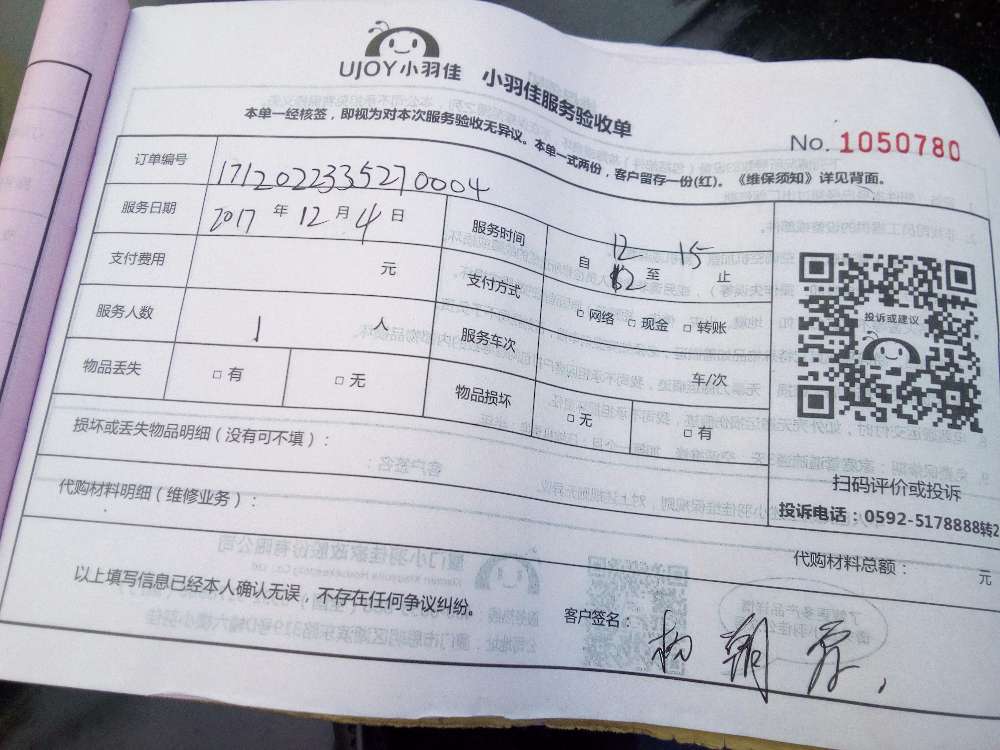 UJOY小羽佳 小羽佳服务验收单
本单一经核签，即视为对本次服务验收无异议。本单一式两份，客户留存一份(红)。《维保须知》详见背面。
No. 1050780
订单编号 1712022335270004
服务日期 2017 年 12 月 4 日 服务时间 自 12 至 15 止
支付费用 元 支付方式 □ 网络 □ 现金 □ 转账
服务人数 1 人 服务车次 车/次
物品丢失 □ 有 □ 无 物品损坏 □ 无 □ 有
投诉或建议
扫码评价或投诉
投诉电话：0592-5178888转2
损坏或丢失物品明细（没有可不填）：
代购材料明细（维修业务）：
代购材料总额： 元
以上填写信息已经本人确认无误，不存在任何争议纠纷。
客户签名： 杨